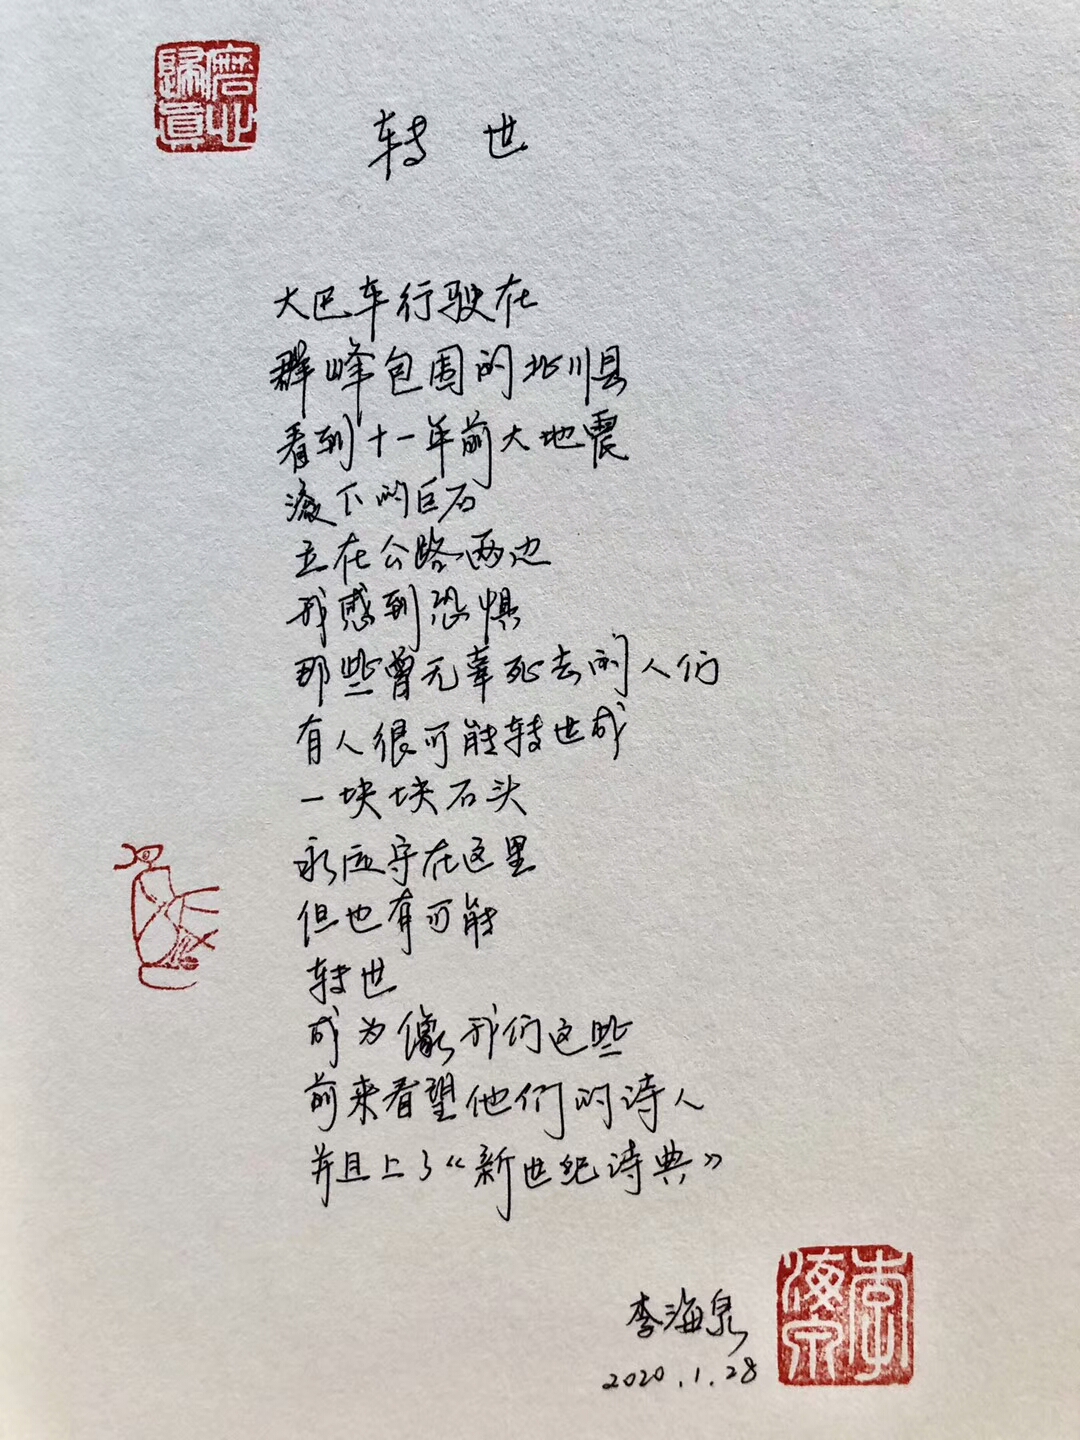 唐止归真
转世
大巴车行驶在
群峰包围的北川县
看到十一年前大地震
滚下的巨石
立在公路两边
我感到恐惧
那些曾无辜死去的人们
有人很可能转世成
一块块石头
永远守在这里
但也有可能
转世
成为像我们这些
前来看望他们的诗人
并且上了《新世纪诗典》
李海泉
2020.1.28
李海泉